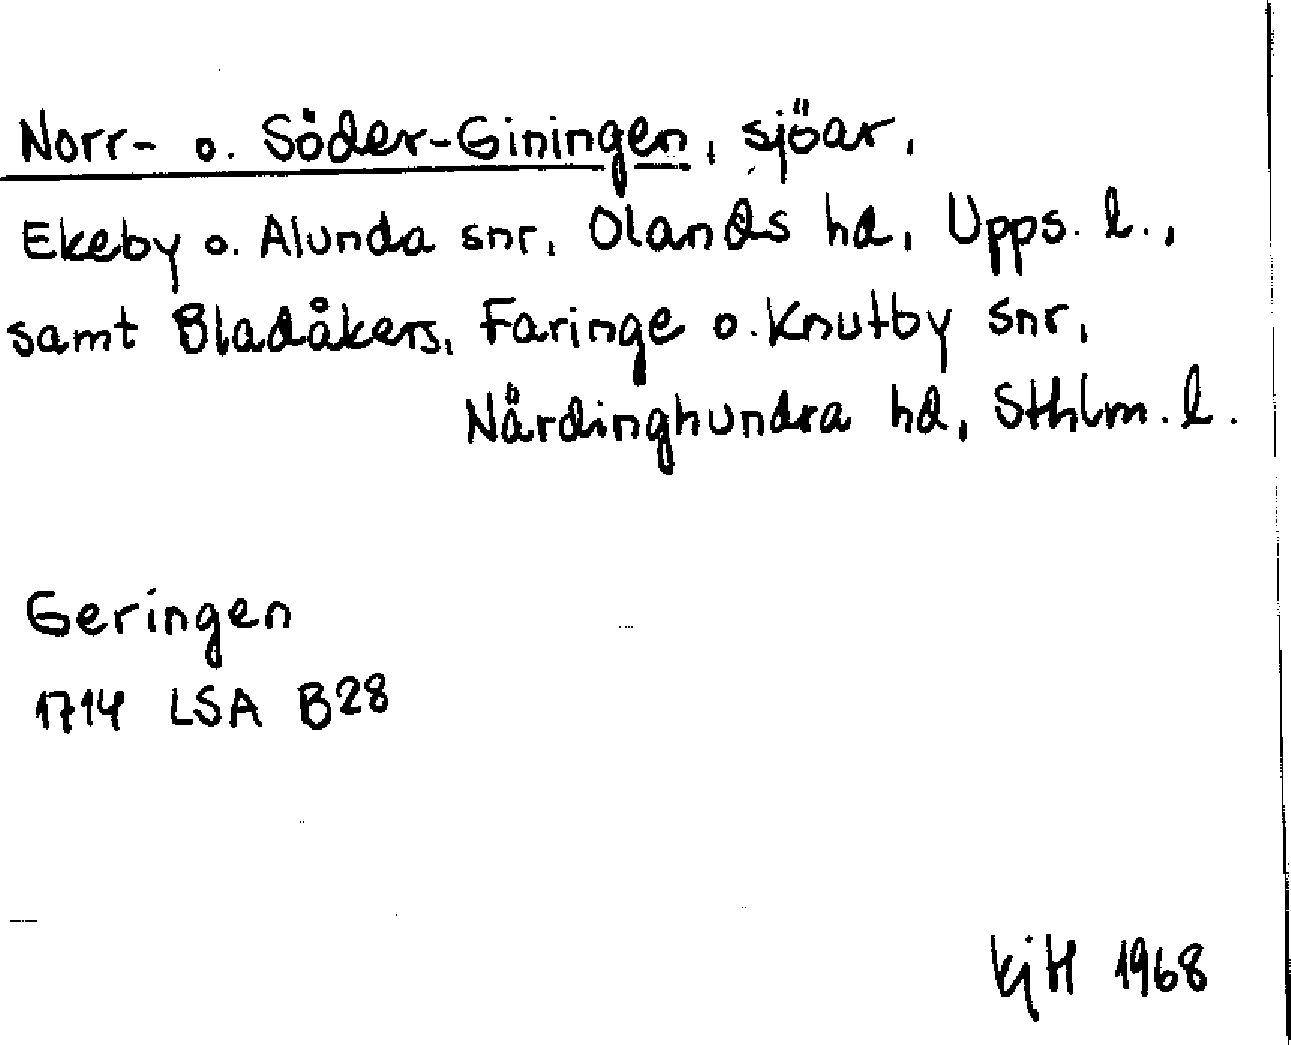 Norr- o. Söder-Giningen, sjöar,
Ekeby o. Alunda snr, Olands hd, Upps. l.,
samt Bladåkers, Faringe o. Knutby snr,
Närdinghundra hd, Sthlm. l.
Geringen
1714 LSA B28
KjH 1968